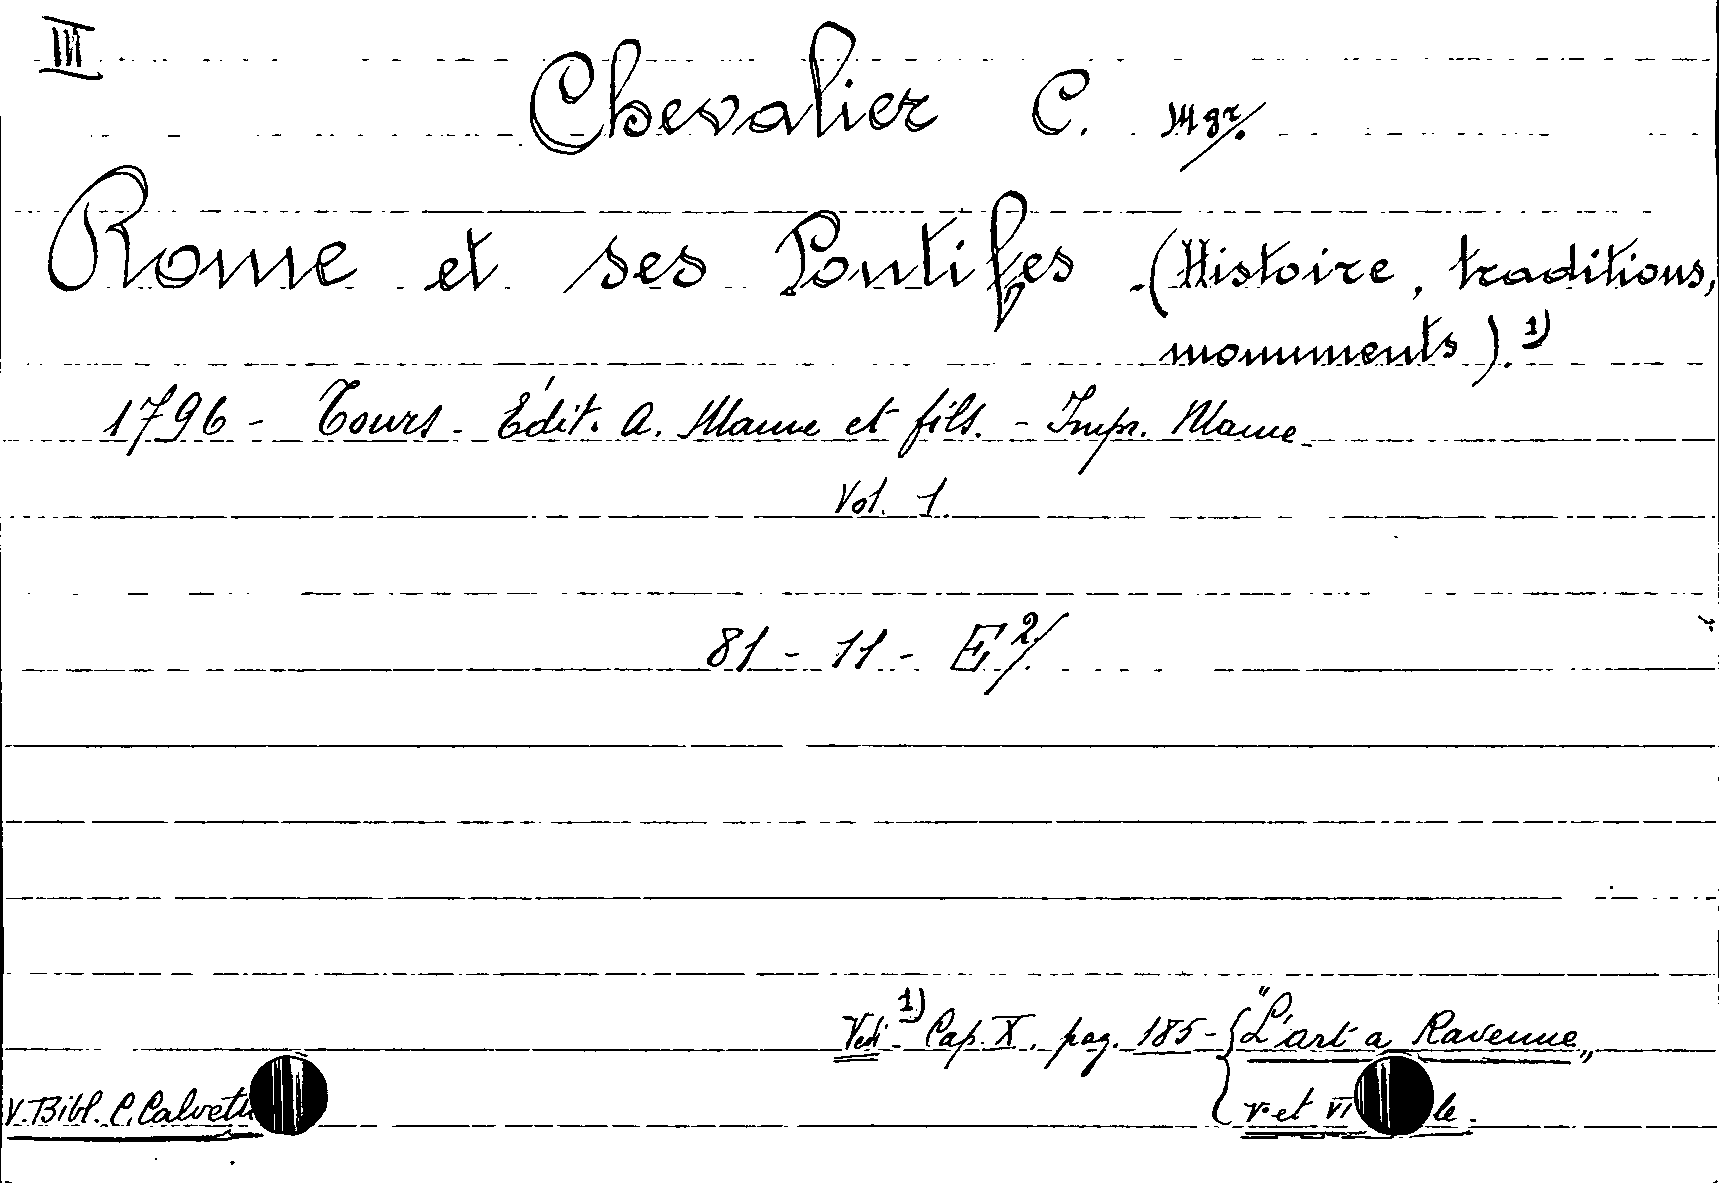 III
Chevalier C. Mgr.
Rome et ses Pontifes. (Histoire, traditions,
monuments).1)
1796 - Tours - Édit. A. Mame et fils. - Impr. Mame -
Vol. 1.
81 - 11 - E2/.
Vedi 1) Cap. X. pag. 185 - { "L'art a Ravenne„
V. Bibl. C. Calvetti
v. et VI